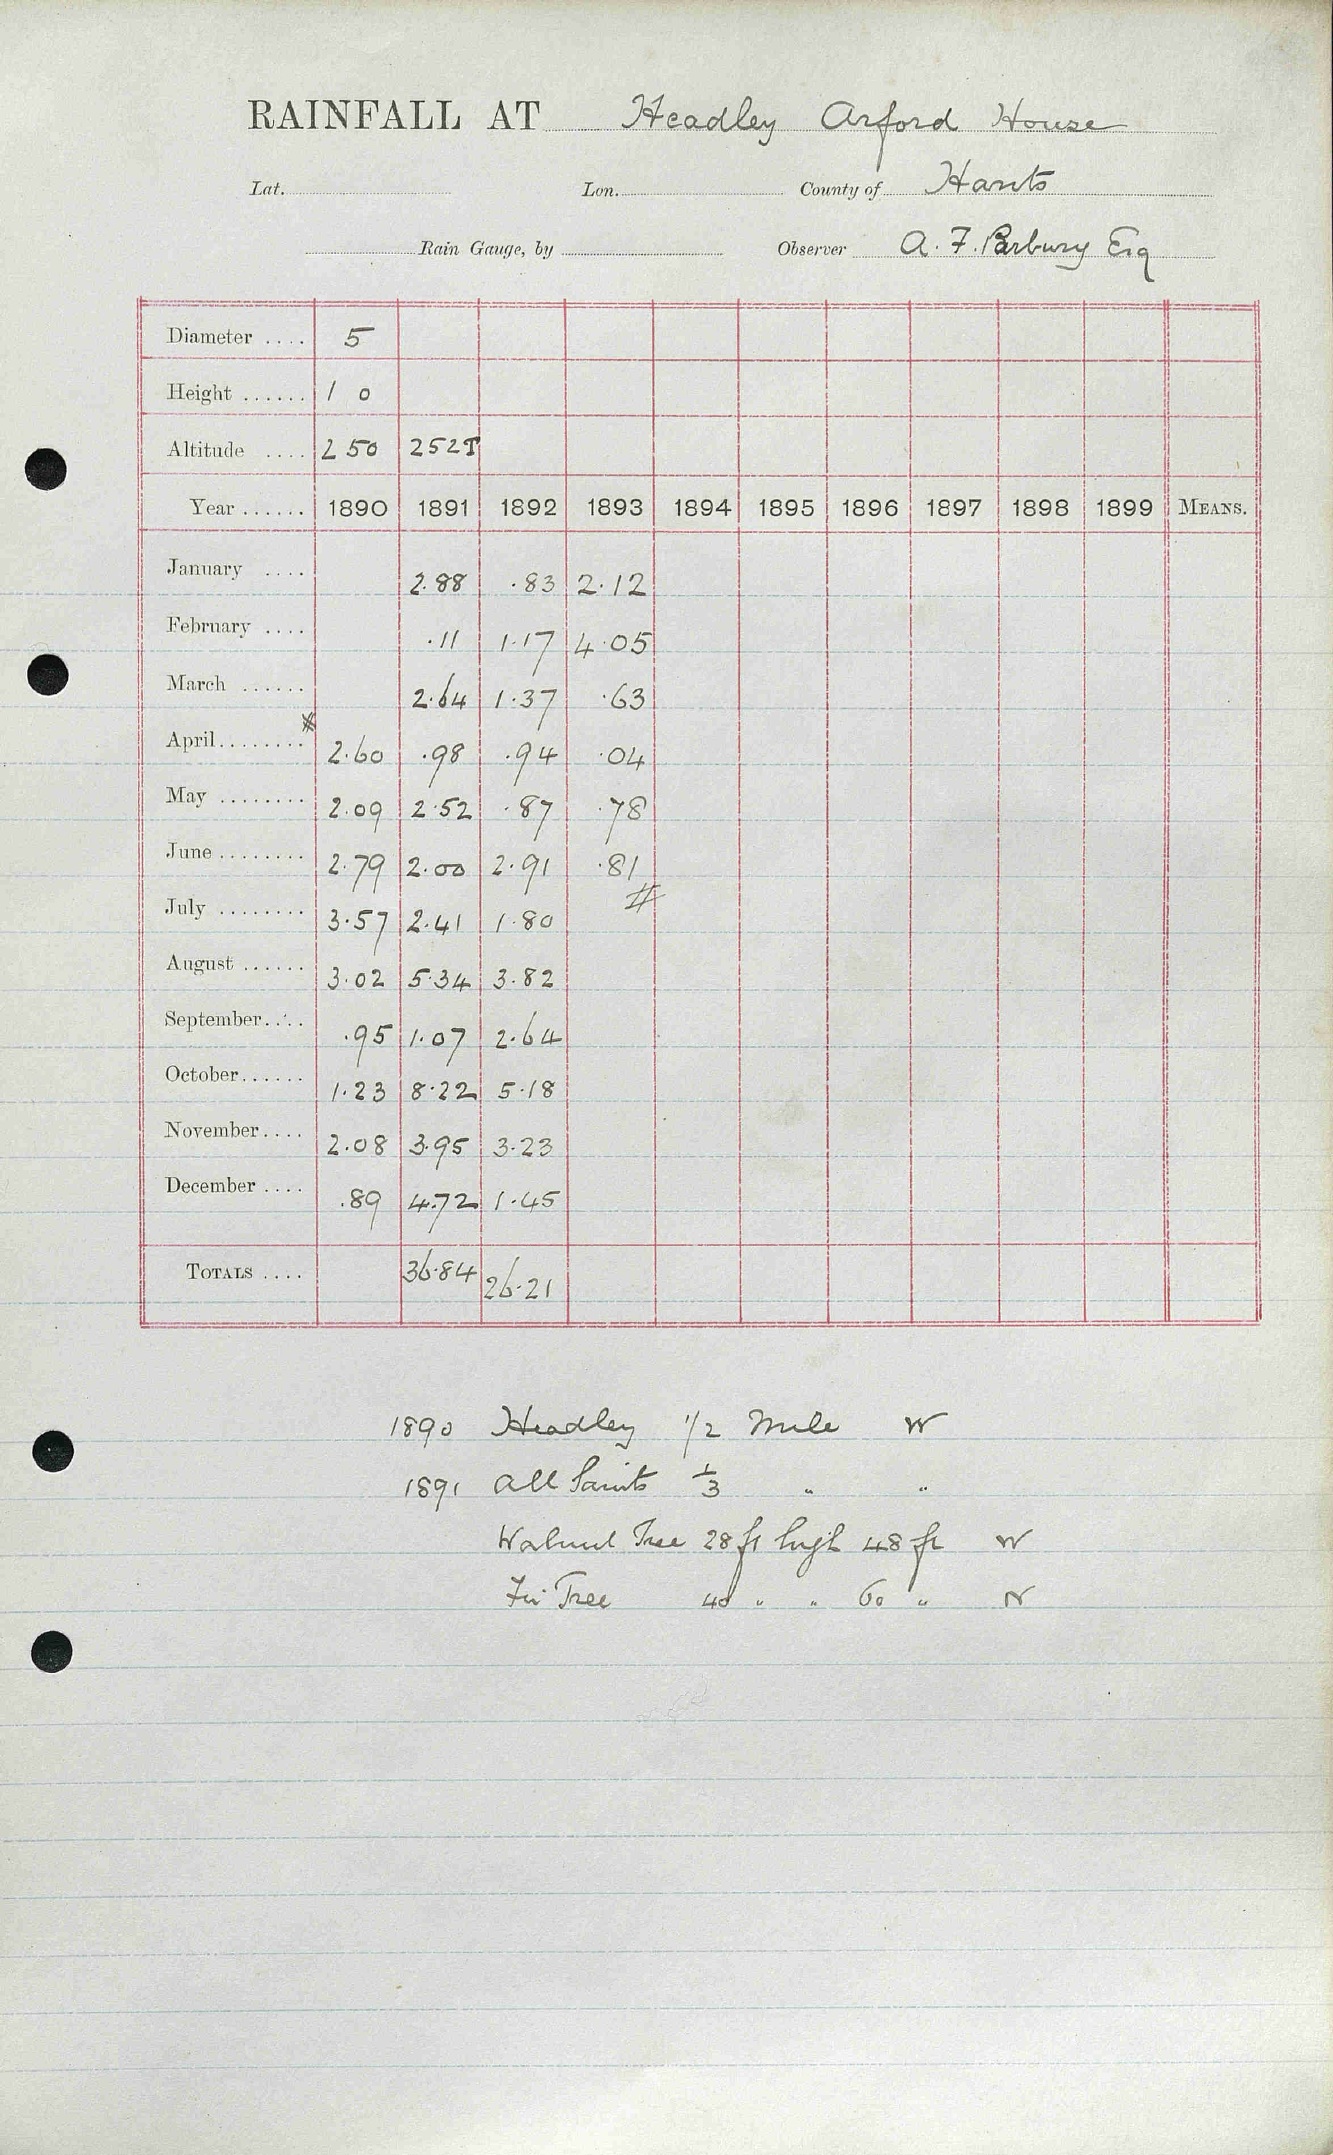 RAINFALL AT Headley Arford House
Lat. Lon. County of Hants
Rain Gauge, by Observer A. F. Parbury Esq
Diameter .... 5
Height ...... 1 0
Altitude .... 250 252T
Year ...... 1890 1891 1892 1893 1894 1895 1896 1897 1898 1899 MEANS.
January .... 2.88 .83 2.12
February .... .11 1.17 4.05
March ...... 2.64 1.37 .63
April ........ 2.60 .98 .94 .04
May ........ 2.09 2.52 .87 .78
June ........ 2.79 2.00 2.91 .81
July ........ 3.57 2.41 1.80
August ...... 3.02 5.34 3.82
September.... .95 1.07 2.64
October...... 1.23 8.22 5.18
November.... 2.08 3.95 3.23
December .... .89 4.72 1.45
TOTALS .... 36.84 26.21
1890 Headley 1/2 Mile W
1891 All Saints 1/3 " "
Walnut Tree 28 ft high 48 ft W
Fir Tree 40 " " 60 " N